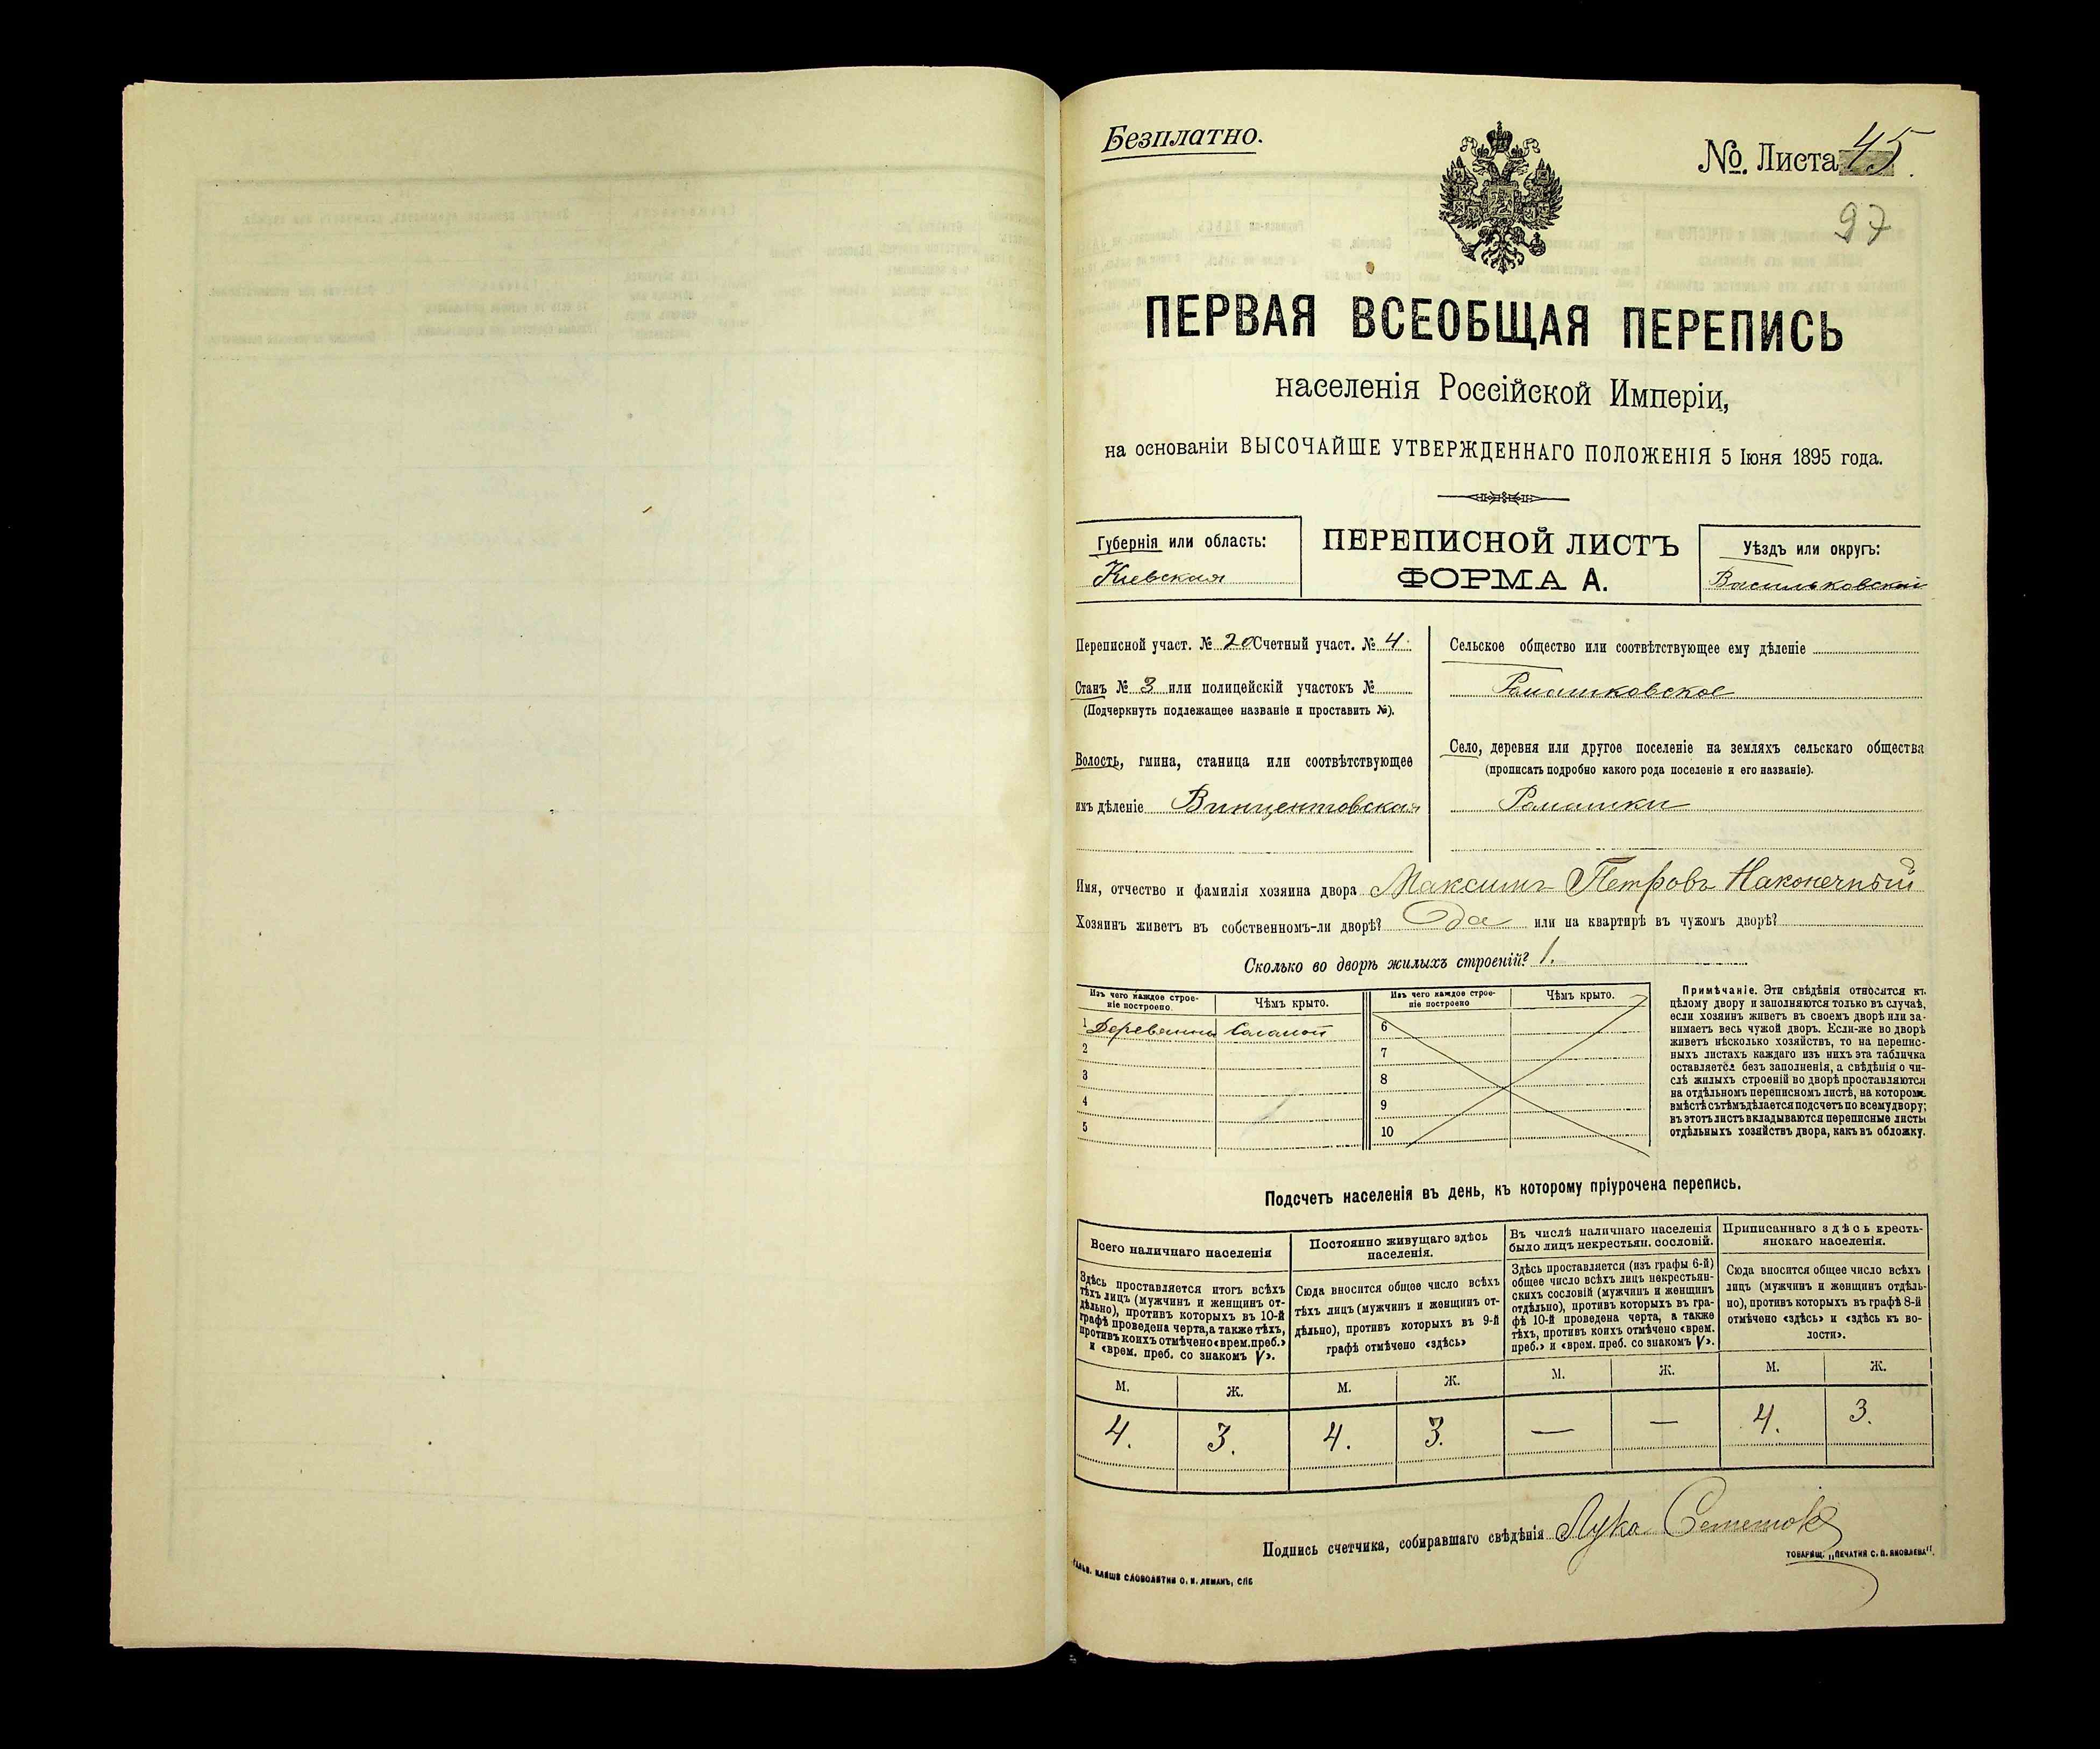 Безплатно.
№. Листа 45.
97
ПЕРВАЯ ВСЕОБЩАЯ ПЕРЕПИСЬ
населенія Россійской Имперіи,
на основаніи ВЫСОЧАЙШЕ УТВЕРЖДЕННАГО ПОЛОЖЕНІЯ 5 Іюня 1895 года.
Губернія или область:
Кіевская
ПЕРЕПИСНОЙ ЛИСТЪ
ФОРМА А.
Уѣздъ или округъ:
Васильковскій
Переписной участ. № 20 Счетный участ. № 4.
Станъ № 3 или полицейскій участокъ №
(Подчеркнуть подлежащее названіе и проставить №).
Волость, гмина, станица или соотвѣтствующее
имъ дѣленіе Винцентовская
Сельское общество или соотвѣтствующее ему дѣленіе
Ромашковское
Село, деревня или другое поселеніе на земляхъ сельскаго общества
(прописать подробно какого рода поселеніе и его названіе).
Ромашки
Имя, отчество и фамилія хозяина двора Максимъ Петровъ Наконечный
Хозяинъ живетъ въ собственномъ-ли дворѣ? Да или на квартирѣ въ чужомъ дворѣ?
Сколько во дворѣ жилыхъ строеній? 1.
Изъ чего каждое строе-
ніе построено.
Чѣмъ крыто.
Изъ чего каждое строе-
ніе построено
Чѣмъ крыто.
1 Соломой
2
3
4
5
6
7
8
9
10
Примѣчаніе. Эти свѣдѣнія относятся къ
цѣлому двору и заполняются только въ случаѣ,
если хозяинъ живетъ въ своемъ дворѣ или за-
нимаетъ весь чужой дворъ. Если-же во дворѣ
живетъ нѣсколько хозяйствъ, то на перепис-
ныхъ листахъ каждаго изъ нихъ эта табличка
оставляется безъ заполненія, а свѣдѣнія о чи-
слѣ жилыхъ строеній во дворѣ проставляются
на отдѣльномъ переписномъ листѣ, на которомъ
вмѣстѣ съ тѣмъ дѣлается подсчетъ по всему двору;
въ этотъ листъ вкладываются переписные листы
отдѣльныхъ хозяйствъ двора, какъ въ обложку.
Подсчетъ населенія въ день, къ которому пріурочена перепись.
Всего наличнаго населенія
Здѣсь проставляется итогъ всѣхъ
тѣхъ лицъ (мужчинъ и женщинъ от-
дѣльно), противъ которыхъ въ 10-й
графѣ проведена черта, а также тѣхъ,
противъ коихъ отмѣчено «врем. преб.»
и «врем. преб. со знакомъ V».
Постоянно живущаго здѣсь
населенія.
Сюда вносится общее число всѣхъ
тѣхъ лицъ (мужчинъ и женщинъ от-
дѣльно), противъ которыхъ въ 9-й
графѣ отмѣчено «здѣсь»
Въ числѣ наличнаго населенія
было лицъ некрестьян. сословій.
Здѣсь проставляется (изъ графы 6-й)
общее число всѣхъ лицъ некрестьян-
скихъ сословій (мужчинъ и женщинъ
отдѣльно), противъ которыхъ въ гра-
фѣ 10-й проведена черта, а также
тѣхъ, противъ коихъ отмѣчено «врем.
преб.» и «врем. преб. со знакомъ V».
Приписаннаго здѣсь кресть-
янскаго населенія.
Сюда вносится общее число всѣхъ
лицъ (мужчинъ и женщинъ отдѣль-
но), противъ которыхъ въ графѣ 8-й
отмѣчено «здѣсь» и «здѣсь къ во-
лости».
М. Ж. М. Ж. М. Ж. М. Ж.
4. 3. 4. 3. — — 4. 3.
Подпись счетчика, собиравшаго свѣдѣнія Лука
ТОВАРИЩ. „ПЕЧАТНЯ С. П. ЯКОВЛЕВА".
СЛОВОЛИТНИ О. И. ЛЕМАНЪ, СПБ